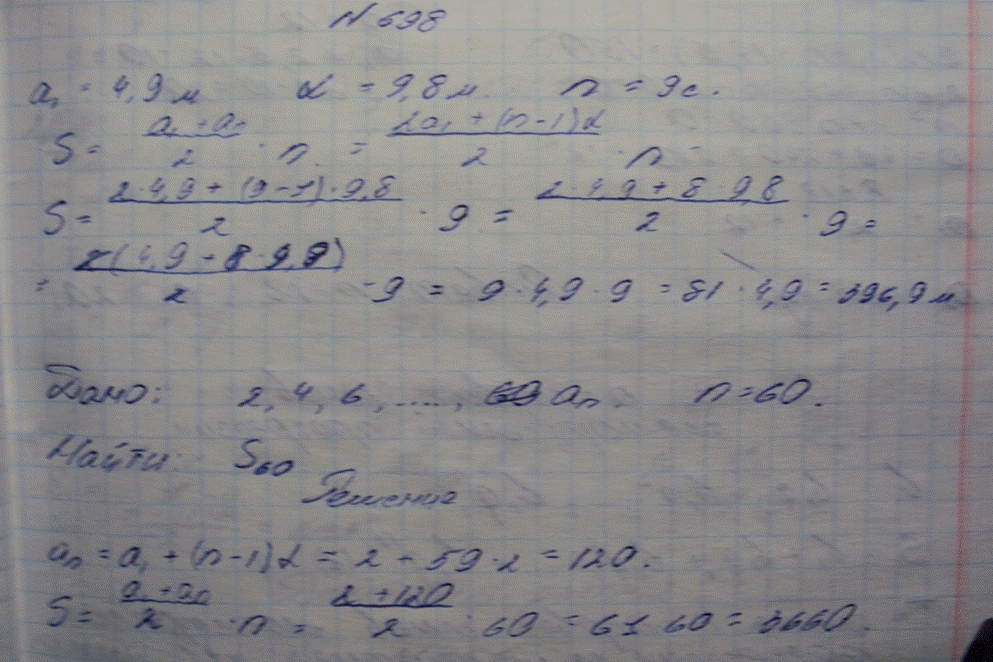 N 698
a₁ = 4,9 м d = 9,8 м. n = 9 с.
S = (a₁ + aₙ)/2 · n = (2a₁ + (n-1)d)/2 · n
S = (2·4,9 + (9-1)·9,8)/2 · 9 = (2·4,9 + 8·9,8)/2 · 9 =
= 2(4,9 + 8·9,8)/2 · 9 = 9·4,9·9 = 81·4,9 = 396,9 м
Дано: 2, 4, 6, ...., aₙ. n = 60.
Найти: S₆₀
Решение
aₙ = a₁ + (n-1)d = 2 + 59·2 = 120.
S = (a₁ + aₙ)/2 · n = (2 + 120)/2 · 60 = 61·60 = 3660.